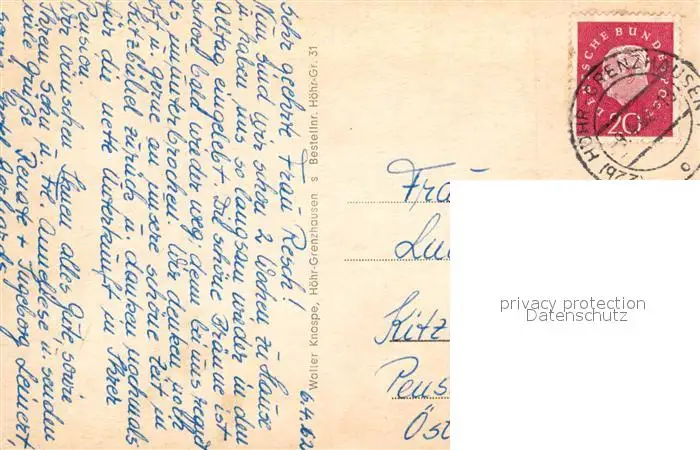 6.4.62
Sehr geehrte Frau Resch!
Nun sind wir schon 2 Wochen zu Hause
u. haben uns so langsam wieder in den
Alltag eingelebt. Die schöne Bräune ist
schon bald wieder weg, denn bei uns regnet
es ununterbrochen. Wir denken noch
oft u. gerne an unsere schöne Zeit in
Kitzbühel zurück u. danken nochmals
für die nette Unterkunft in Ihrer
Pension.
Wir wünschen Ihnen alles Gute, sowie
Ihrem Sohn u. Frl. Anneliese u. senden
viele Grüße Renate + Ingeborg
Walter Knospe, Höhr-Grenzhausen s Bestellnr. Höhr-Gr. 31
DEUTSCHE BUNDESPOST
20
HÖHR-GRENZHAUSEN
Kitz
Pens
Öst
privacy protection
Datenschutz